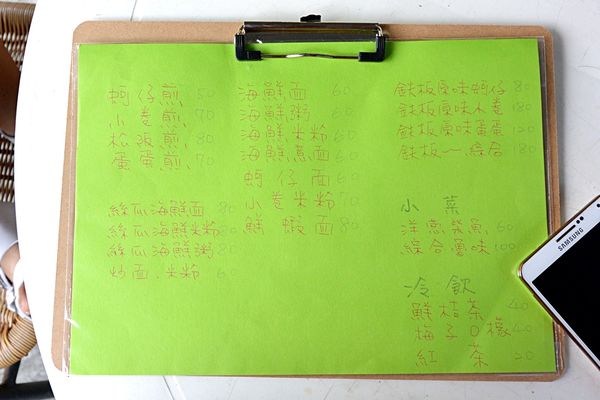 蚵仔煎 50
小卷煎 70
松阪煎 80
蛋蛋煎 70
絲瓜海鮮面 80
絲瓜海鮮米粉 80
絲瓜海鮮粥 80
炒面.米粉 60
海鮮面 60
海鮮粥 60
海鮮米粉 60
海鮮意面 60
蚵仔面 60
小卷米粉 70
鮮蝦面 80
鉄板風味蚵仔 80
鉄板風味小卷 180
鉄板風味蛋蛋 120
鉄板～綜合 180
小菜
洋蔥柴魚 60
綜合魯味 100
冷飲
鮮桔茶 40
梅子O檬 40
紅茶 20
SAMSUNG